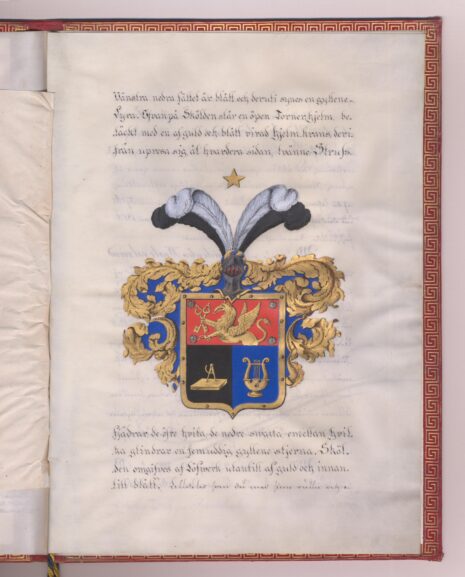 Vänstra nedra fältet är blått och deruti synes en gyllene
Lyra. Ofvanpå Skölden står en öpen Tornerhjelm, be-
täckt med en af guld och blått virad hjelm-krans, deri-
från upresa sig åt hvardera sidan, tvänne Struss-
fjädrar, de öfre hvita, de nedre swarta emellan hvil-
ka glindrar en femuddig gyllene stjerna, Sköl-
den omgifves af Löfwerk utantill af guld och innan-
till blått.